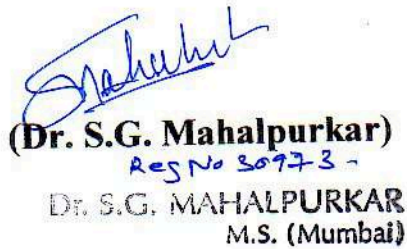 (Dr. S.G. Mahalpurkar)
Reg No 30973-
Dr. S.G. MAHALPURKAR
M.S. (Mumbai)